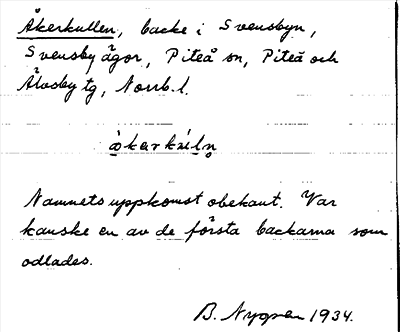 Åkerkullen, backe i Svensbyn,
Svensby ägor, Piteå sn, Piteå och
Älvsby tg, Norrb.l.
åkerkúln̥
Namnets uppkomst obekant. Var
kanske en av de första backarna som
odlades.
B. Nygren 1934.